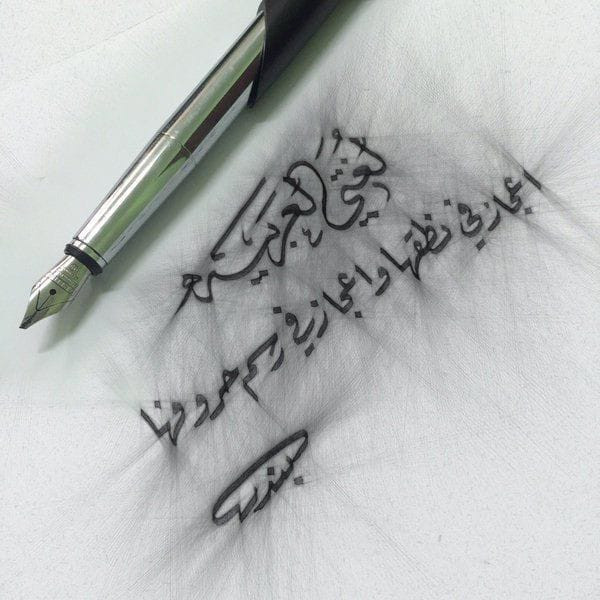 لغتي العربية
اعجاز في نطقها واعجاز في رسم حروفها
بندر